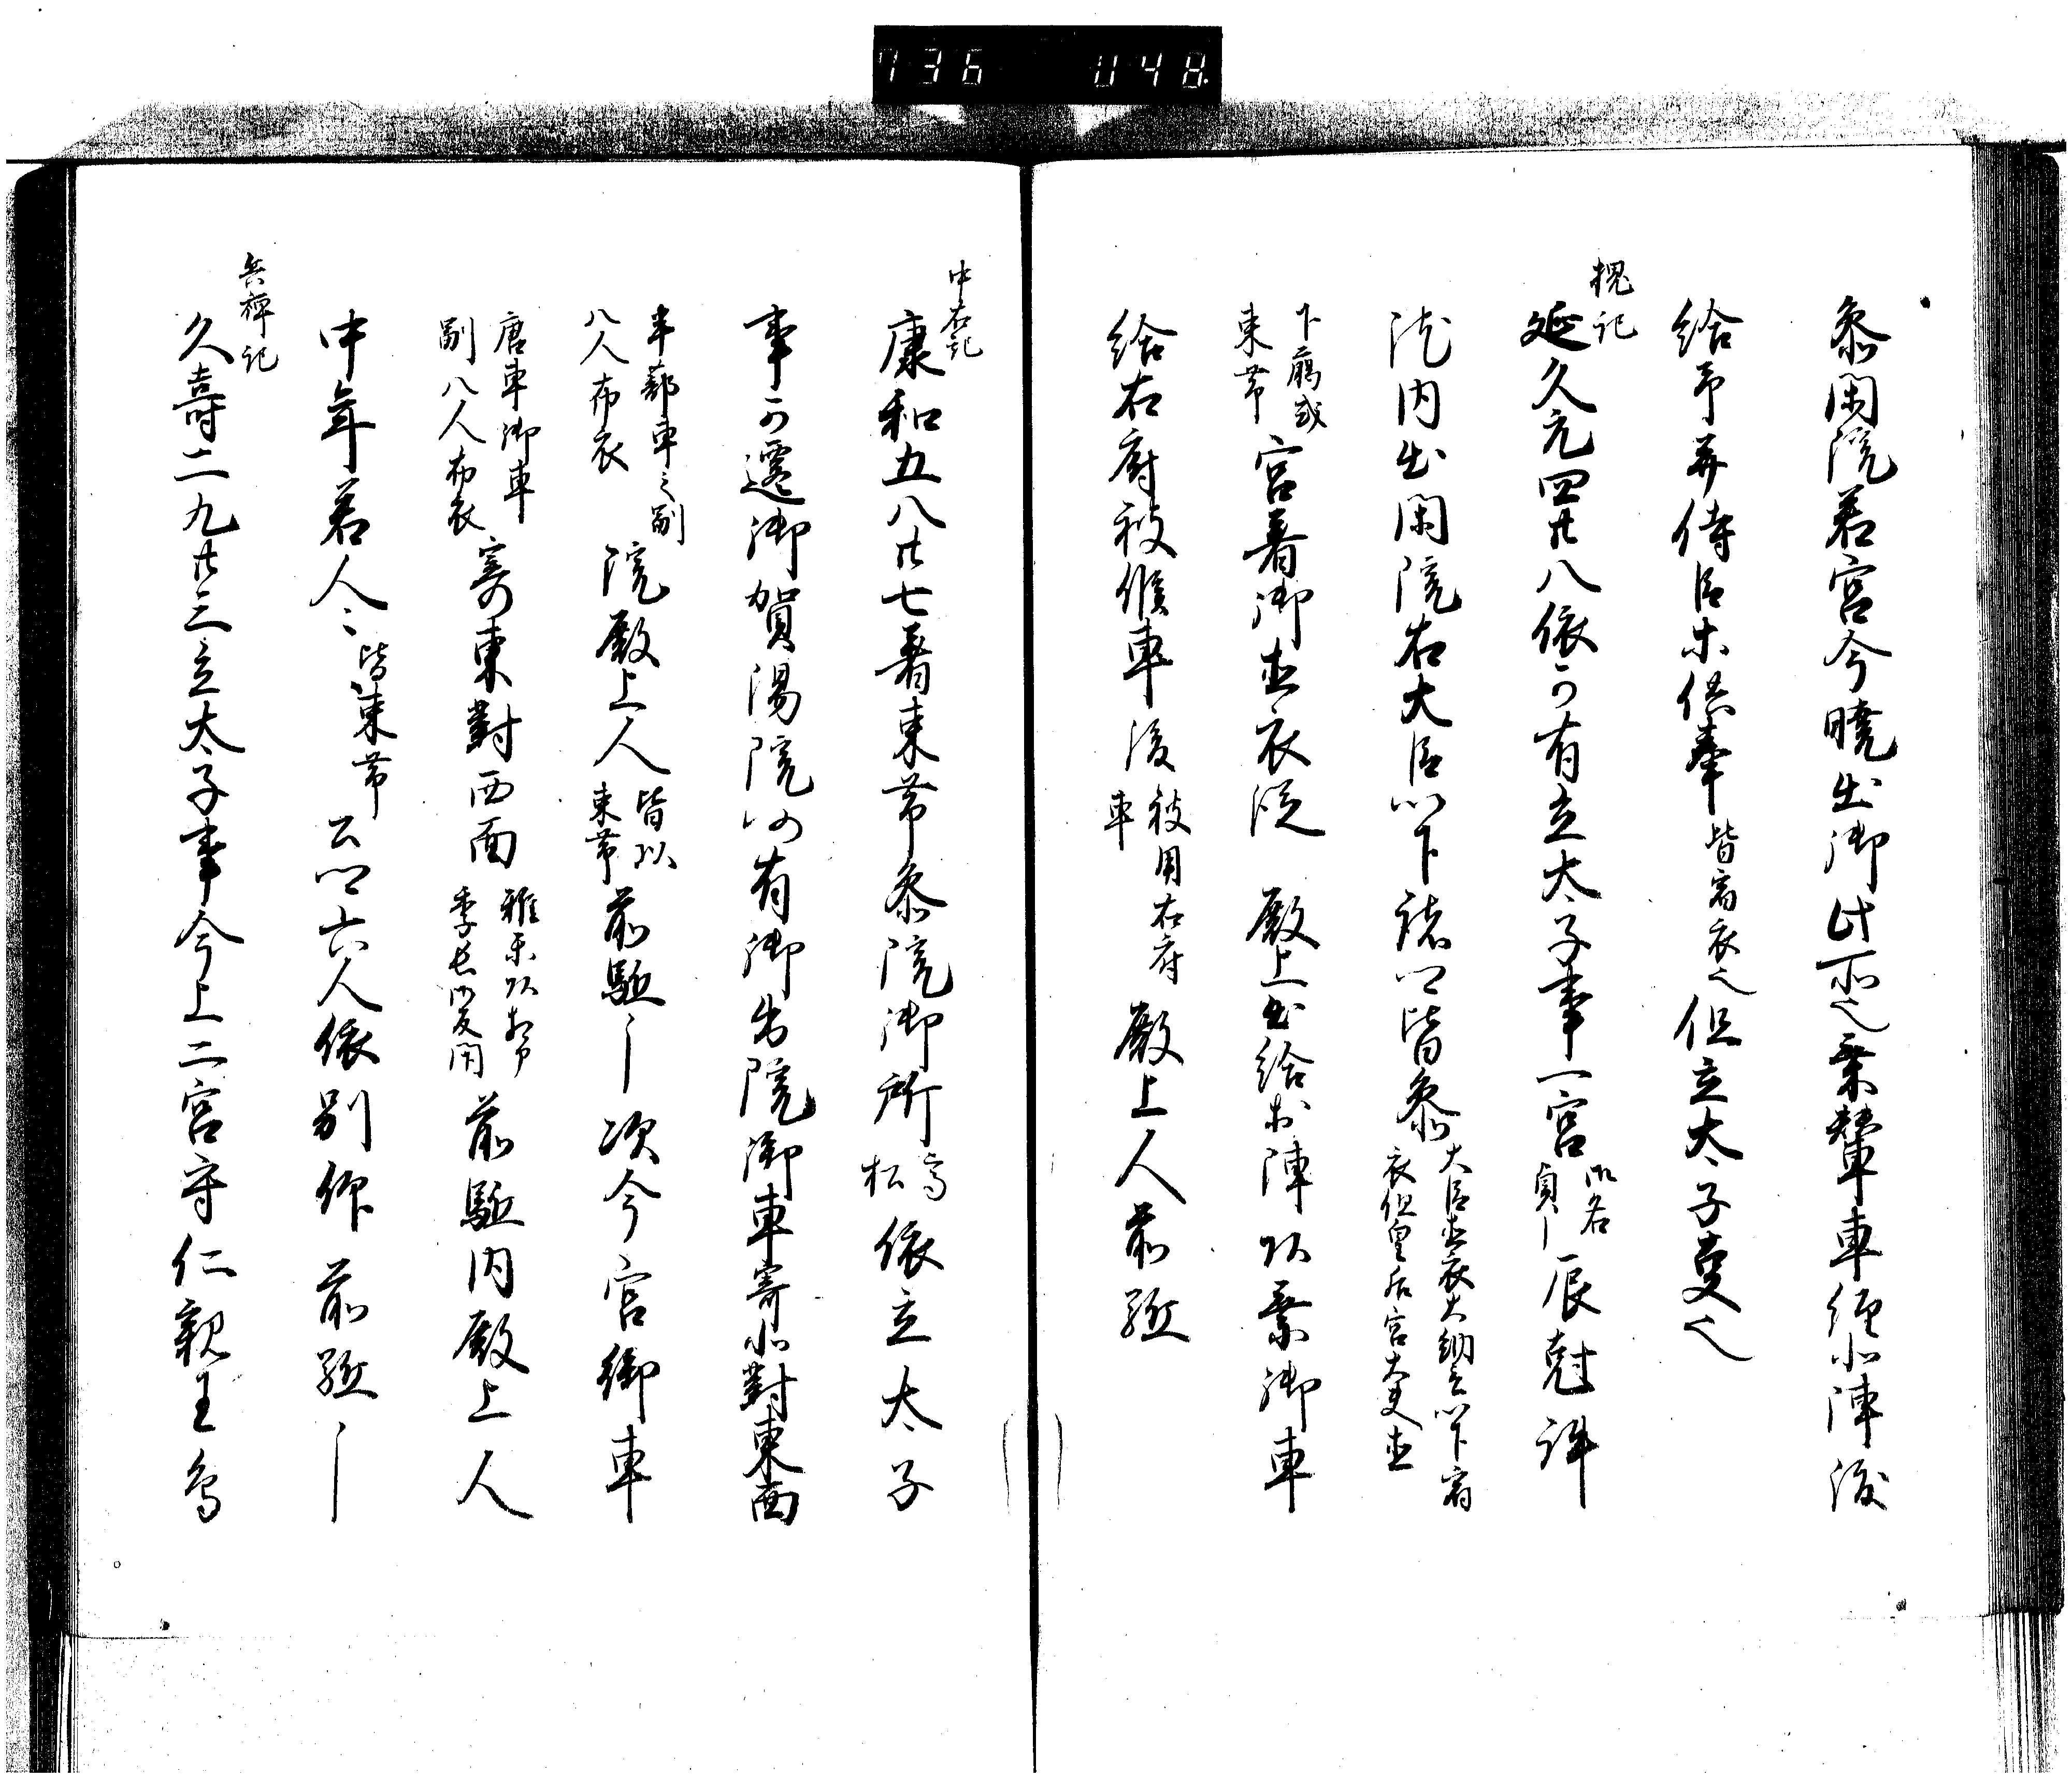 736 048
参閑院若宮今暁出御此所之乗輦車經北陣後
給予并侍臣等供奉皆宿衣也但立太子夏也
槐記
延久元四廿八依可有立太子事一宮御名貞—辰尅許
従内出閑院右大臣以下諸卿皆参大臣直衣大納言以下宿衣但皇后宮大夫直
下﨟或束帯宮着御直衣従殿上出給於陣以乗御車
給右府被候車後被用右府車殿上人前駈
中右記
康和五八廿七着束帯参院御所高松依立太子
事可遷御賀陽院仍有御出院御車寄北對東面
半蔀車之副八人布衣院殿上人皆以束帯前駈—次今宮御車
唐車御車副八人布衣寄東對西面前駈内殿上人
中年若人々皆束帯公卿六人依別仰前駈—
兵禅記
久寿二九廿三立太子事今上二宮守仁親王為